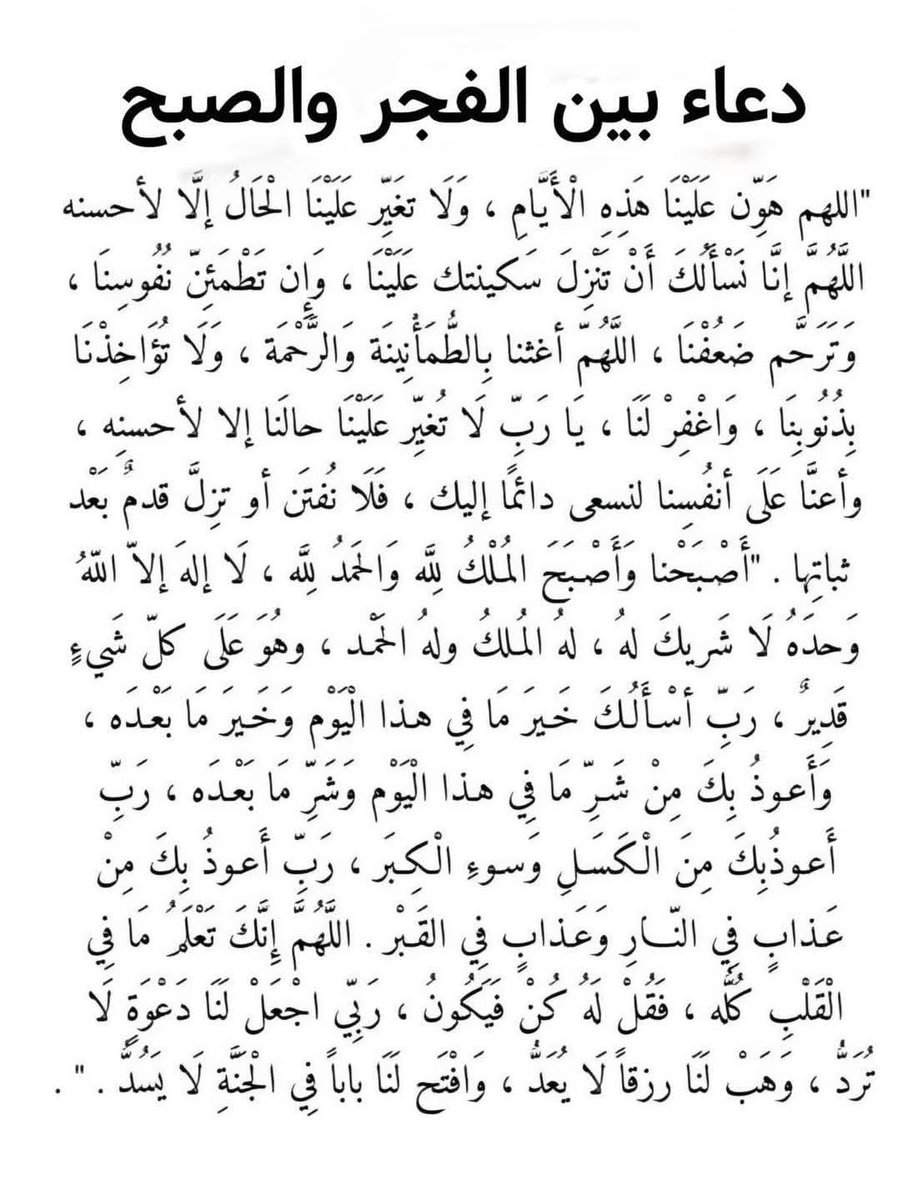 دعاء بين الفجر والصبح
"اللهم هَوِّن عَلَيْنَا هَذِهِ الْأَيَّامِ ، وَلَا تغَيِّر عَلَيْنَا الْحَالُ إلَّا لأحسنه
اللَّهُمَّ إنَّا نَسْأَلُكَ أَنْ تَنْزِلَ سَكينتك عَلَيْنَا ، وَإِن تَطْمَئِنّ نُفُوسِنَا ،
وَتَرَحَّم ضَعُفْنَا ، اللَّهُمّ أغثنا بِالطُّمَأْنِينَة وَالرَّحْمَة ، وَلَا تُؤَاخِذْنَا
بِذُنُوبِنَا ، وَاغْفِرْ لَنَا ، يَا رَبِّ لَا تُغيِّر عَلَيْنَا حالَنا إلا لأحسنِه ،
وأعنَّا عَلَى أنفُسِنا لنسعى دائمًا إليك ، فَلَا نُفتَن أو تزِلَّ قدمٌ بَعْد
ثباتِها . "أَصْبَحْنا وَأَصْبَحَ المُلْكُ لِلَّه وَالحَمدُ لِلَّه ، لَا إلهَ إلاّ اللّهُ
وَحدَهُ لَا شَريكَ لهُ ، لهُ المُلكُ ولهُ الحَمْد ، وهُوَ عَلَى كلّ شَيءٍ
قَدِيرٌ ، رَبِّ أسْأَلُكَ خَيرَ مَا فِي هذا الْيَوْم وَخَيرَ مَا بَعْدَه ،
وَأَعوذُ بِكَ مِنْ شَرِّ مَا فِي هذا الْيَوْم وَشَرِّ مَا بَعْدَه ، رَبِّ
أَعوذُبِكَ مِنَ الْكَسَلِ وَسوءِ الْكِبَر ، رَبِّ أَعوذُ بِكَ مِنْ
عَذابٍ فِي النّارِ وَعَذابٍ فِي القَبْر . اللَّهُمَّ إِنَّكَ تَعْلَمُ مَا فِي
الْقَلْبِ كُلُّه ، فَقُلْ لَهُ كُنْ فَيَكُونُ ، رَبِّي اجْعَلْ لَنَا دَعْوَةٍ لَا
تُرَدُّ ، وَهَبْ لَنَا رزقاً لَا يُعَدُّ ، وَافْتَح لَنَا باباً فِي الْجَنَّةِ لَا يَسُدُّ . " .